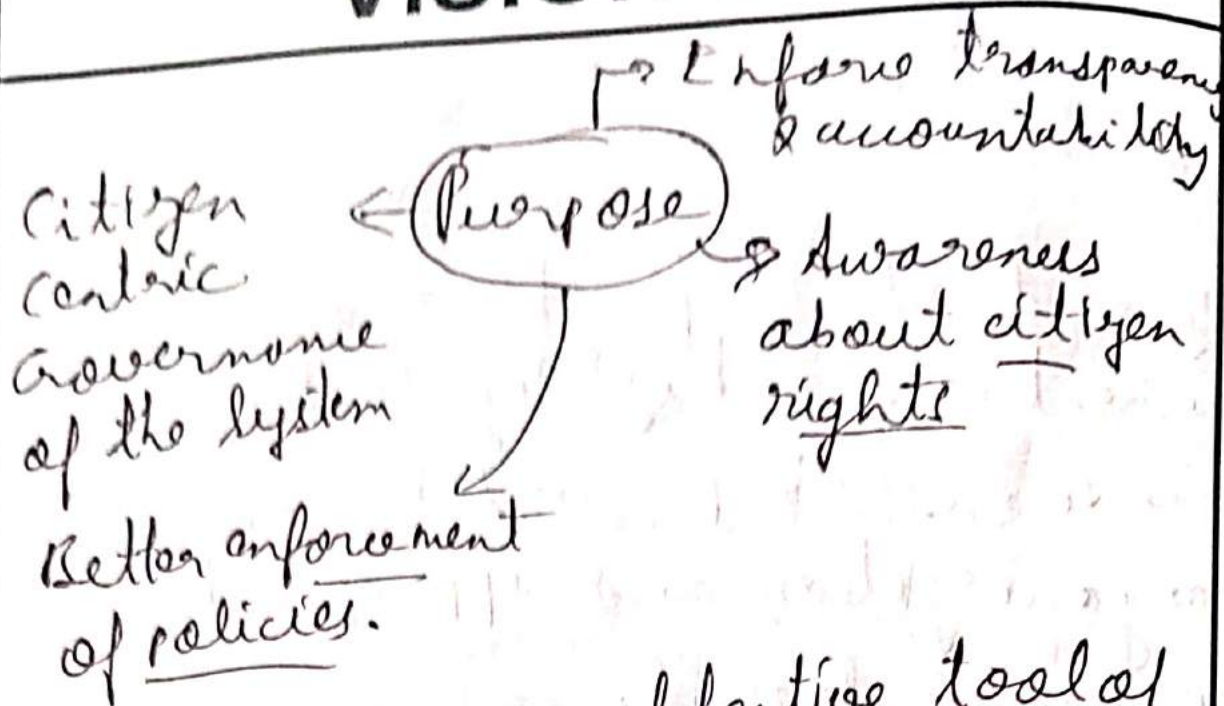 Enforce transparency
& accountability
Purpose
Citizen
centric
Governance
of the system
Awareness
about citizen
rights
Better enforcement
of policies.
tool of